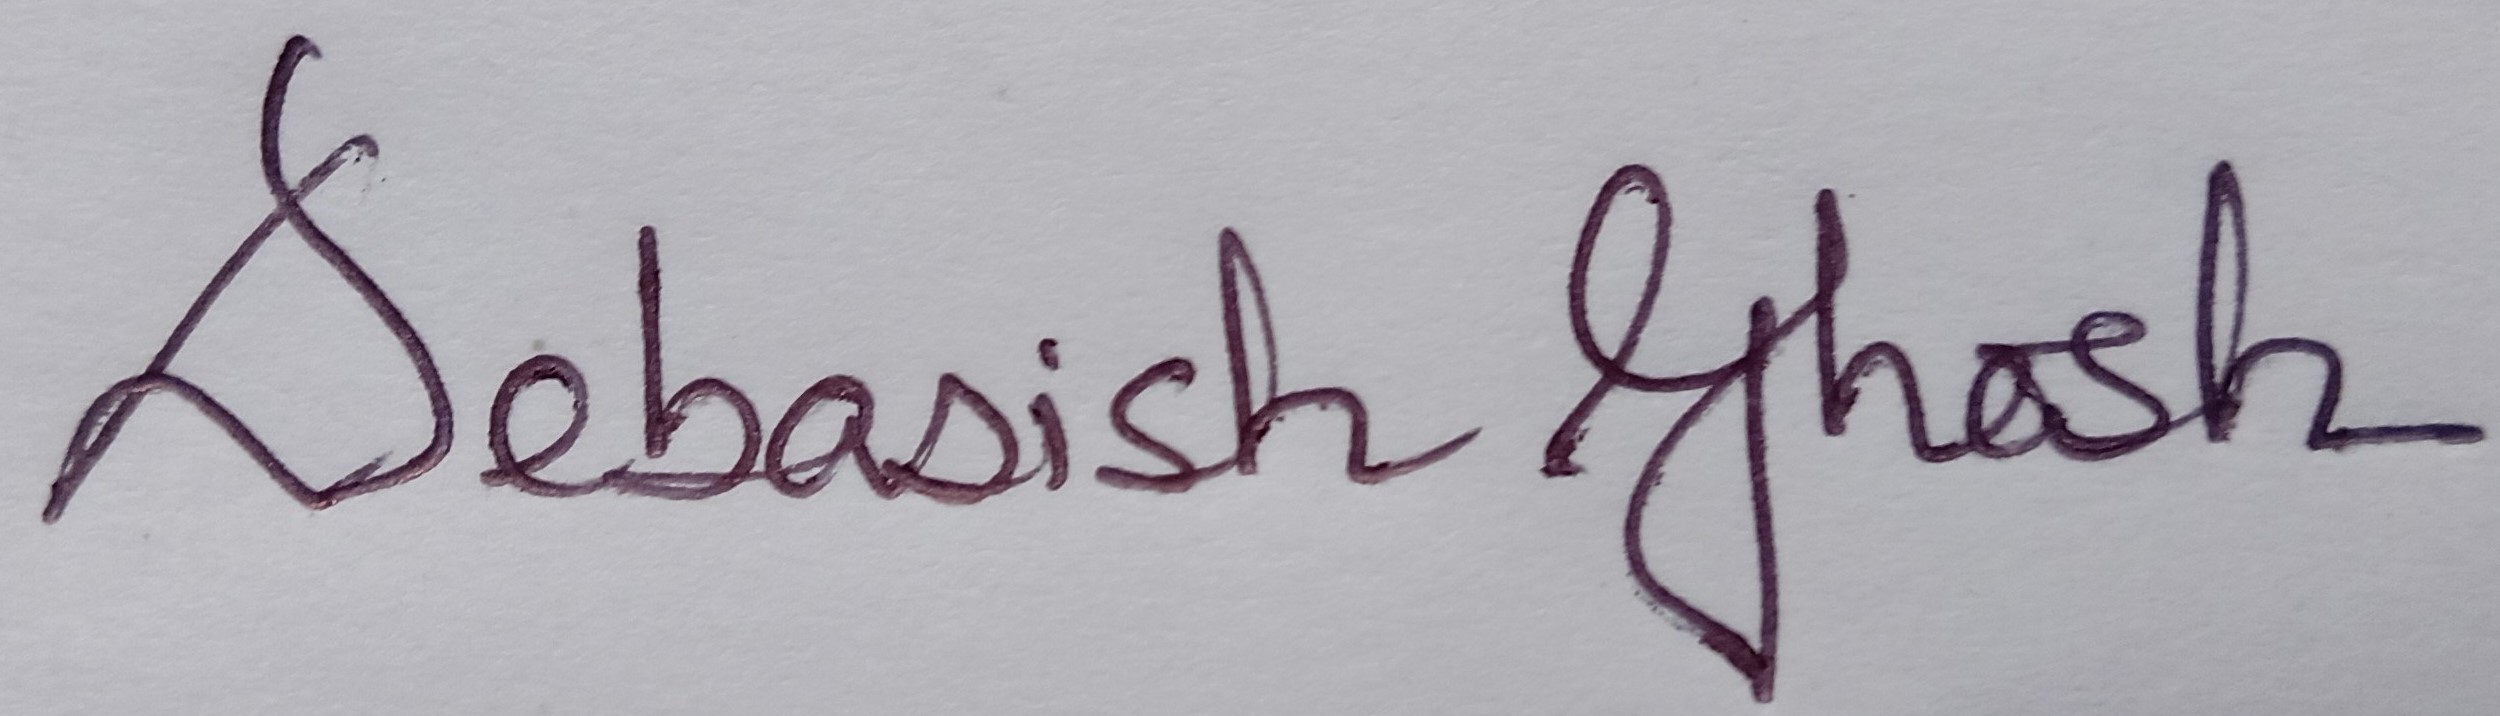 Debasish Ghosh